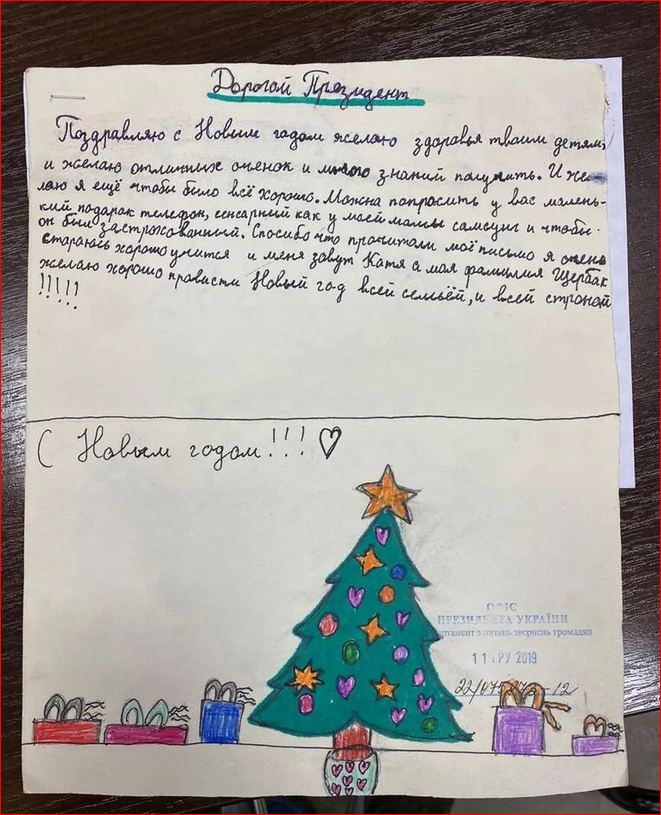 Дорогой Президент
Поздравляю с Новым годом желаю здоровья твоим детям,
и желаю отличных оченок и много знаний получить. И же-
лаю я ещё чтобы было всё хорошо. Можна попросить у вас малень-
кий подарок телефон, сенсарный как у моей мамы самсунг и чтобы
он был застрахованный. Спосибо что прочитали моё письмо я очень
стараюсь хорошо учится и меня завут Катя а моя фамилия Щербак
желаю хорошо прависти Новый год всей семьёй, и всей строной
!!!!!
С Новым годом!!! ♡
ОФІС
ПРЕЗИДЕНТА УКРАЇНИ
Департамент з питань звернень громадян
11 ГРУ 2019
22/07
-12